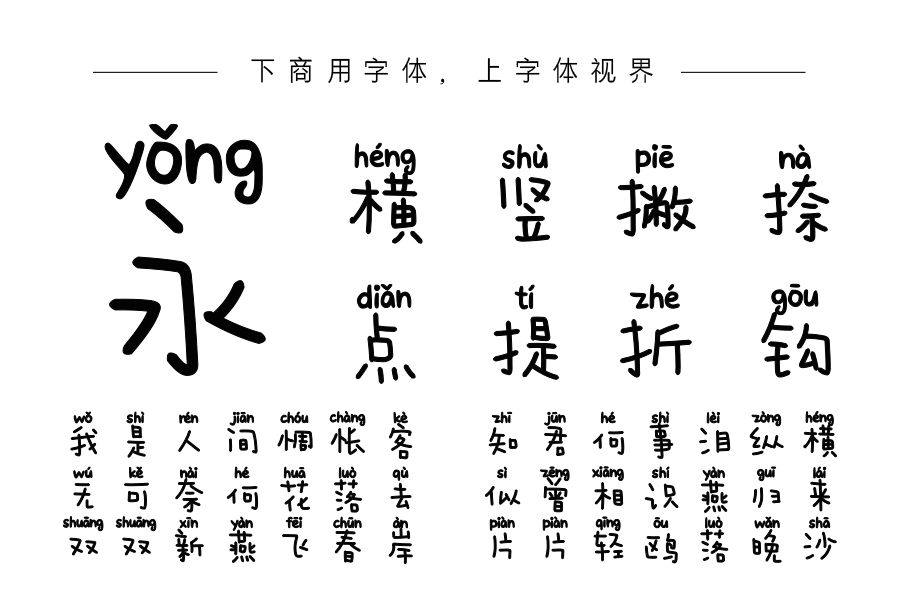 下商用字体，上字体视界
yǒng héng shù piē nà
永 横 竖 撇 捺
diǎn tí zhé gōu
点 提 折 钩
wǒ shì rén jiān chóu chàng kè zhī jūn hé shì lèi zòng héng
我是人间惆怅客 知君何事泪纵横
wú kě nài hé huā luò qù sì zēng xiāng shí yàn guī lái
无可奈何花落去 似曾相识燕归来
shuāng shuāng xīn yàn fēi chūn àn piàn piàn qīng ōu luò wǎn shā
双双新燕飞春岸 片片轻鸥落晚沙